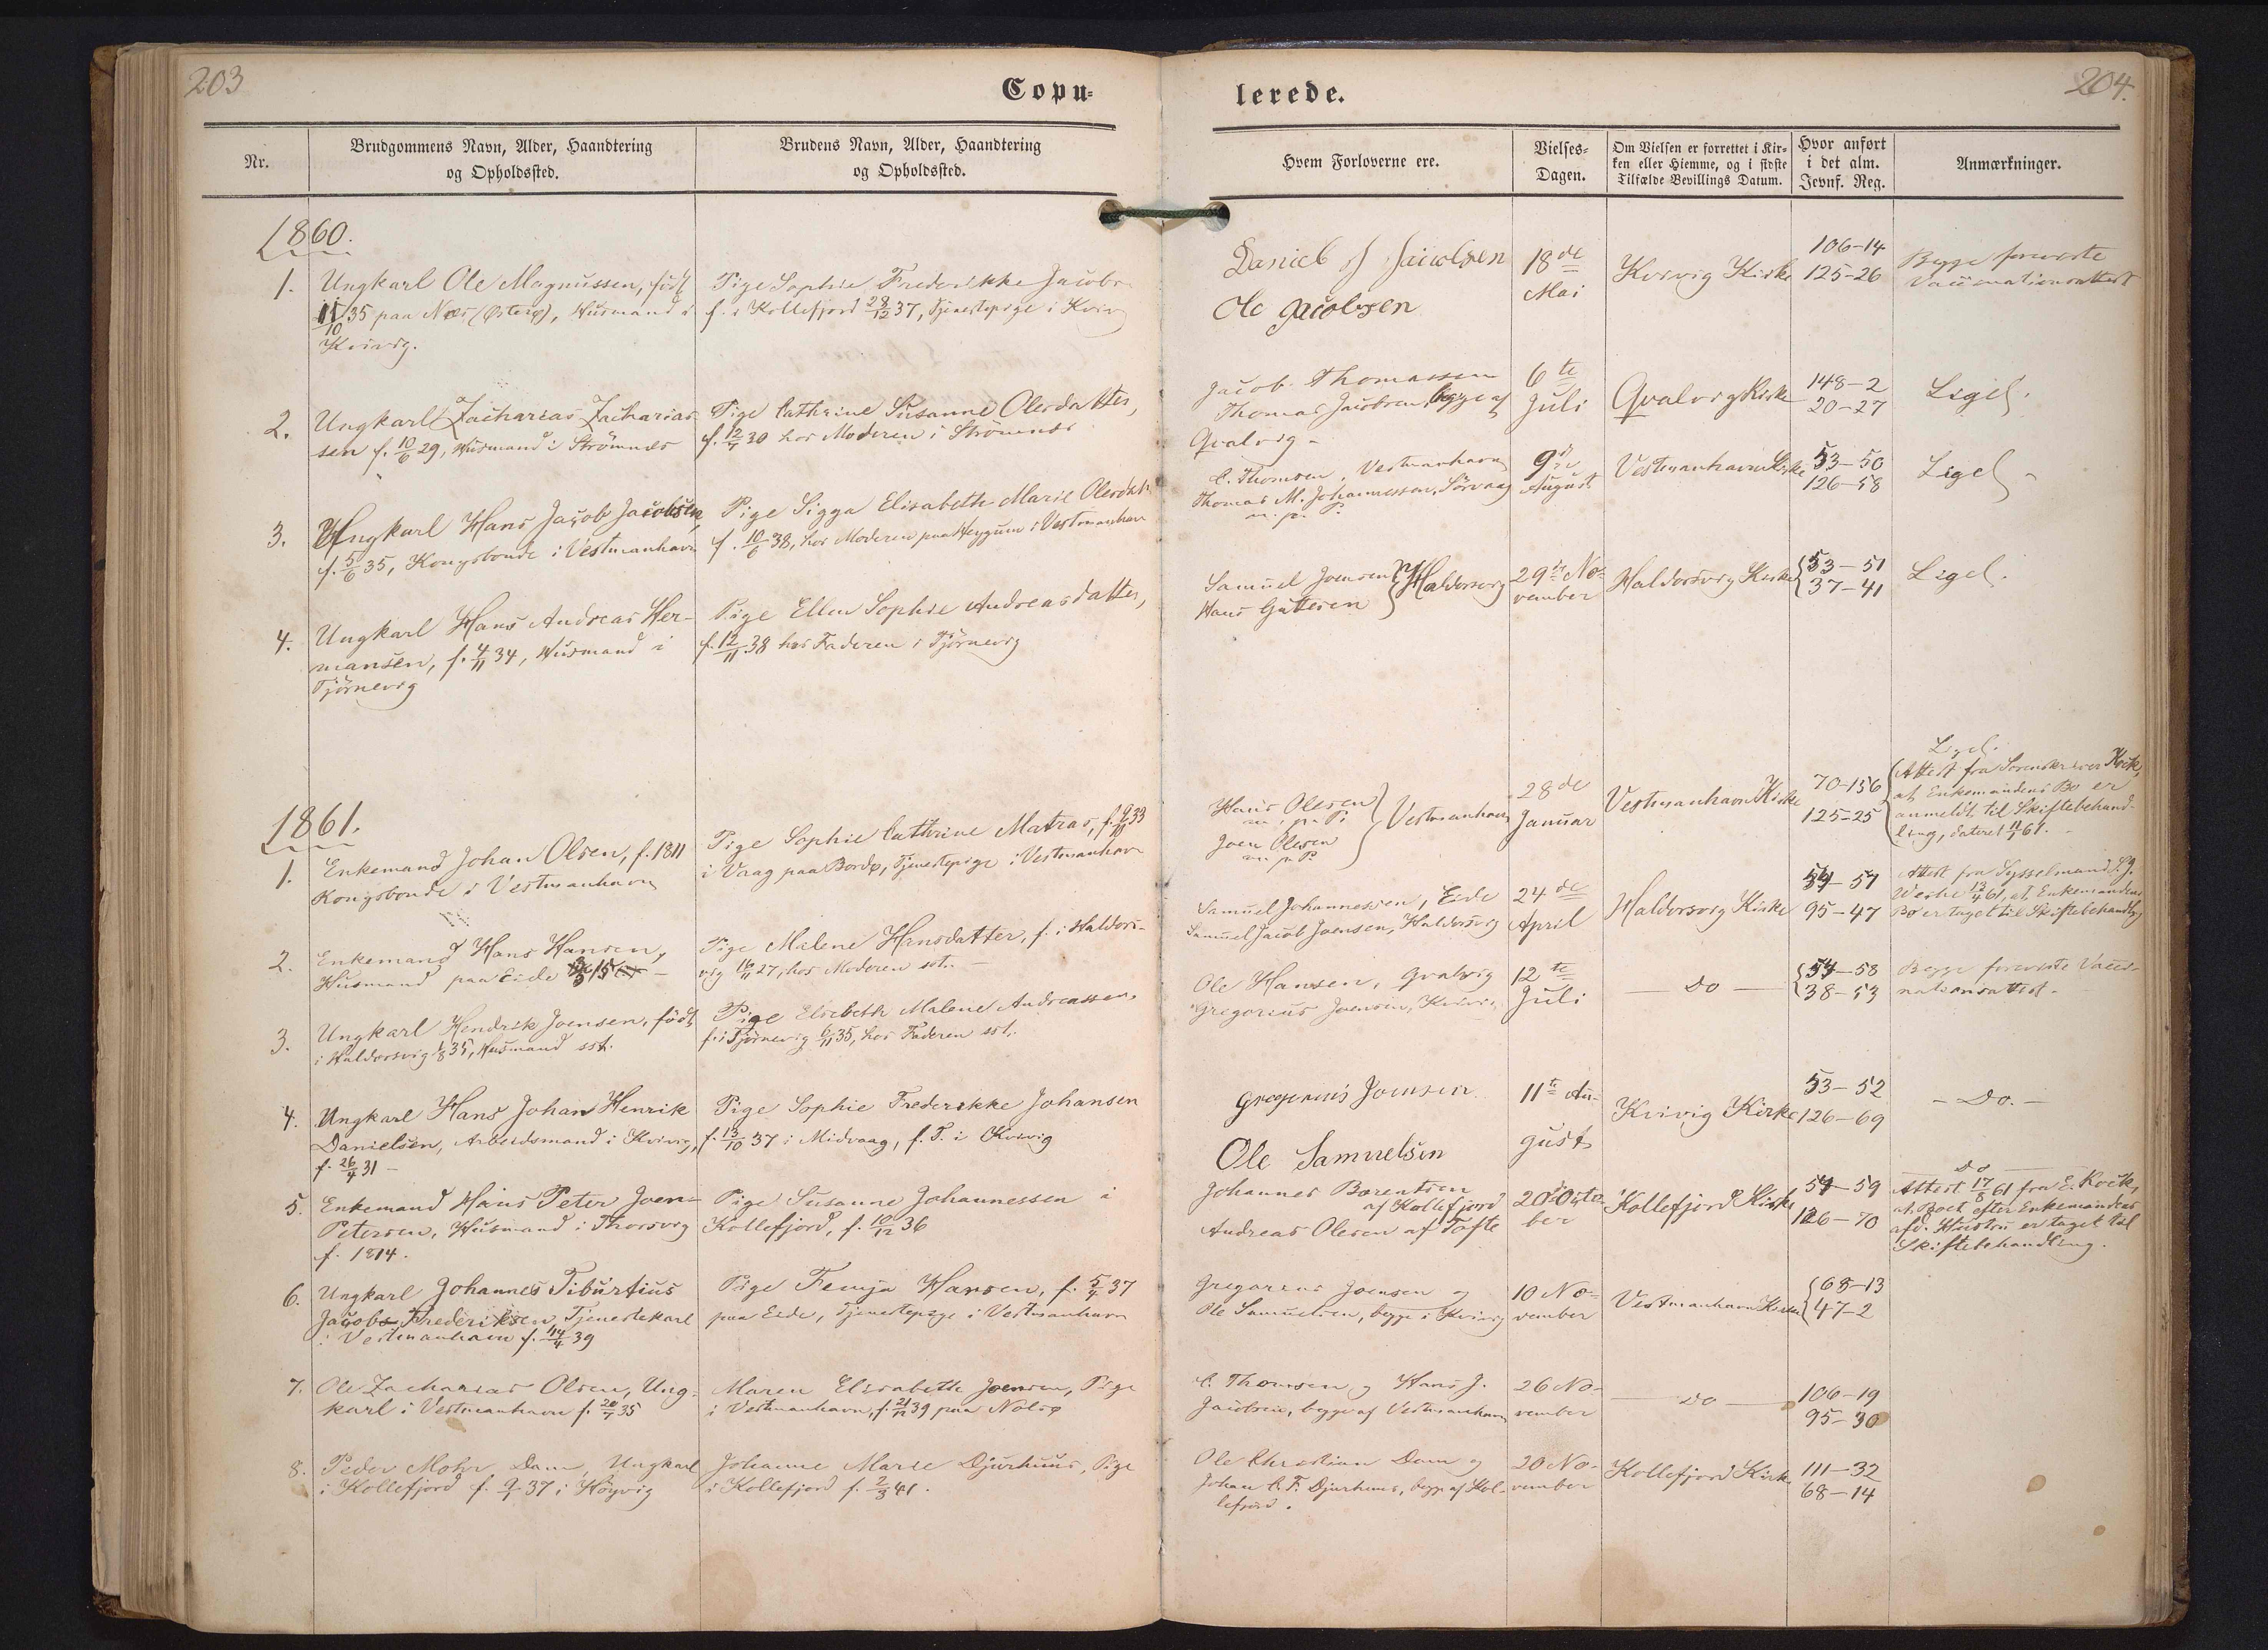 203
Copu-
lerede.
204.
Nr.
Brudgommens Navn, Alder, Haandtering
og Opholdssted.
Brudens Navn, Alder, Haandtering
og Opholdssted.
Hvem Forloverne ere.
Vielses-
Dagen.
Om Vielsen er forrettet i Kir-
ken eller Hjemme, og i sidste
Tilfælde Bevillings Datum.
Hvor anført
i det alm.
Jevnf. Reg.
Anmærkninger.
1860.
1.
Ungkarl Ole Magnussen, født
11/10 35 paa Næs (Østerø), Husmand i
Kvivig.
Pige Sophie Frederikke Jacobs
f. i Kollefjord 28/12 37, Tjenestepige i Kvivig
Daniel J Jacobsen
Ole Jacobsen
18de
Mai
Kvivig Kirke
106-14
125-26
Begge foreviste
Vaccinationsattest
2.
Ungkarl Zacharias Zacharias
sen f. 10/6 29, Husmand i Strømnæs
Pige Cathrine Susanne Olesdatter,
f. 12/4 30 hos Moderen i Strømnæs
Jacob Thomassen
Thomas Jacobsen begge af
Qvalvig -
6te
Juli
Qvalvig Kirke
148-2
20-27
Ligel.
3.
Ungkarl Hans Jacob Jacobsen,
f. 5/6 35, Kongsbonde i Vestmanhavn
Pige Sigga Elisabeth Marie Olesdatt
f. 10/6 38, hos Moderen paa Heygum i Vestmanhavn
C. Thomsen, Vestmanhavn
Thomas M. Johannessen, Sørvaag
m. p. P.
9de
August
Vestmanhavn Kirke
53-50
126-58
Ligel -
4.
Ungkarl Hans Andreas Her-
mansen, f. 4/11 34, Husmand i
Tjørnevig
Pige Ellen Sophie Andreasdatter,
f. 12/11 38 hos Faderen i Tjørnevig
Samuel Joensen
Hans Guttesen
Haldorsvig
29de No-
vember
Haldorsvig Kirke
53-51
37-41
Ligel.
1861.
1.
Enkemand Johan Olsen, f. 1811
Kongsbonde i Vestmanhavn
Pige Sophie Cathrine Matras, f. 9/11 33
i Vaag paa Bordø, Tjenestepige i Vestmanhavn
Hans Olesen
m. p. P.
Joen Olesen
m. p. P.
Vestmanhavn
28de
Januar
Vestmanhavn Kirke
70-156
125-25
Ligel.
Attest fra Sorenskriver Kock,
at Enkemandens Bo er
anmeldt til Skiftebehand-
ling, dateret 11/1 61.
2.
Enkemand Hans Hansen,
Husmand paa Eide
Pige Malene Hansdatter, f. i Haldors-
vig 16/11 27, hos Moderen sst. -
Samuel Johannessen, Eide
Samuel Jacob Joensen, Haldorsvig
24de
April
Haldorsvig Kirke
54-57
95-47
Attest fra Sysselmand
13/4 61, at Enkemandens
Bo er taget til Skiftebehandlg
3.
Ungkarl Hendrik Joensen, født
i Haldorsvig 1/8 35, Husmand sst.
Pige Elsebeth Malene Andreassen,
f. i Tjørnevig 6/11 35, hos Faderen sst.
Ole Hansen, Qvalvig
Gregorius Joensen, Kvivig
12te
Juli
- Do -
54-58
38-53
Begge foreviste Vacci-
nationsattest.
4.
Ungkarl Hans Johan Henrik
Danielsen, Arbeidsmand i Kvivig,
f. 26/4 31 -
Pige Sophie Frederikke Johansen
f. 13/10 37 i Midvaag, f. T. i Kvivig
Gregorius Joensen
Ole Samuelsen
11te Au-
gust
Kvivig Kirke
53-52
126-69
- Do. -
5.
Enkemand Hans Peter Joen-
Petersen, Husmand i Thorsvig
f. 1814.
Pige Susanne Johannessen i
Kollefjord, f. 10/12 36
Johannes Berentsen
af Kollefjord
Andreas Olesen af Tofte
20de Octo-
ber
Kollefjord Kirke
54-59
126-70
Do
Attest 17/8 61 fra E. Kock,
at Boet efter Enkemandens
afd. Hustru er taget til
Skiftebehandling.
6.
Ungkarl Johannes Tiburtius
Jacobs Frederiksen, Tjenestekarl
i Vestmanhavn f. 14/4 39
Pige Femja Hansen, f. 5/4 37
paa Eide, Tjenestepige i Vestmanhavn
Gregorius Joensen og
Ole Samuelsen, begge i Kvivig
10 No-
vember
Vestmanhavn Kirke
68-13
47-2
7.
Ole Zacharias Olsen, Ung-
karl i Vestmanhavn f. 20/7 35
Maren Elisabeth Joensen, Pige
i Vestmanhavn, f. 21/12 39 paa Nolsø
C. Thomsen og Hans J.
Jacobsen, begge af Vestmanhavn
26 No-
vember
- Do -
106-19
95-30
8.
Peder Mohr Dam, Ungkarl
i Kollefjord f. 9/1 37 i Høyvig
Johanne Marie Djurhuus, Pige
i Kollefjord f. 2/3 41.
Ole Christian Dam og
Johan C. F. Djurhuus, begge af Kol-
lefjord.
20 No-
vember
Kollefjord Kirke
111-32
68-14